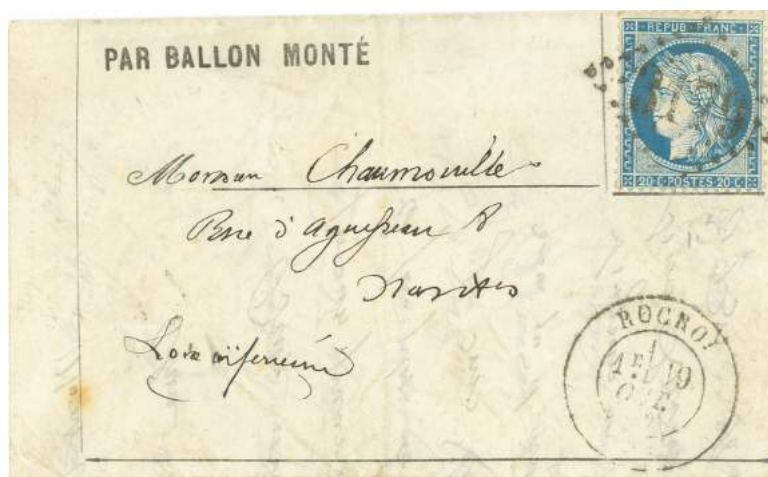 PAR BALLON MONTÉ
REPUB. FRANC.
20 C. POSTES 20 C.
Monsieur Chaumouille
Rue d'Aguesseau 8
Nantes
Loire inférieure
ROCROI
1E 19
OCT.